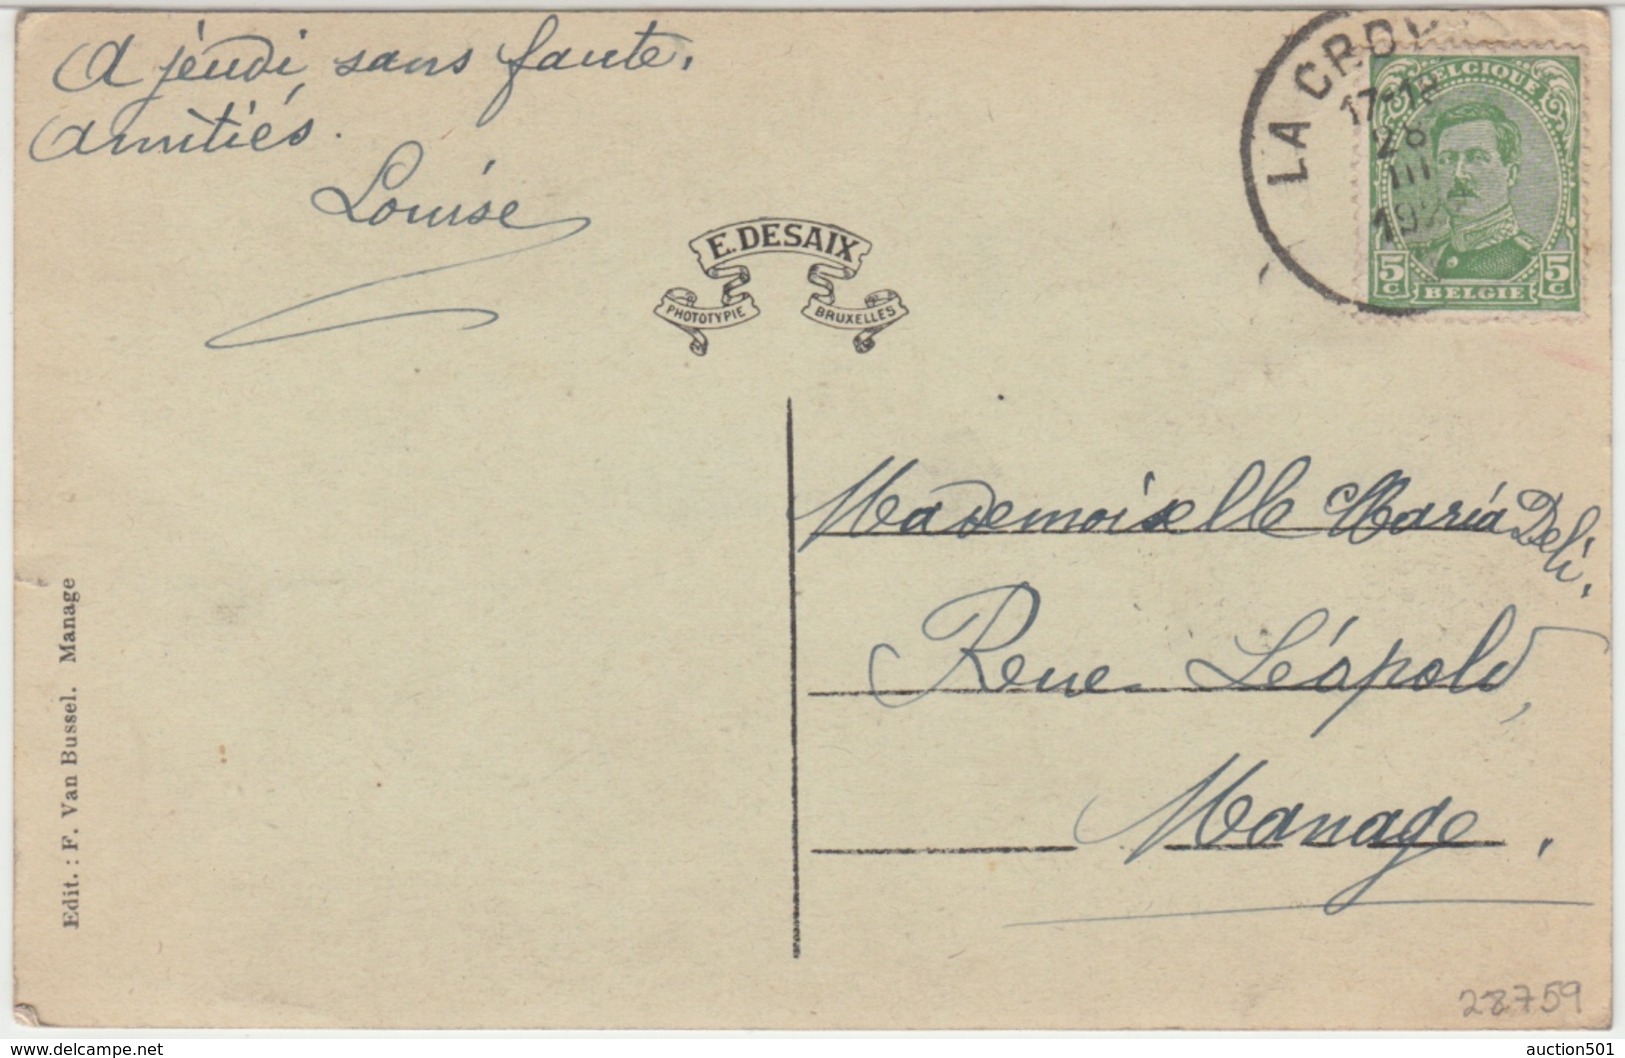 A jeudi sans faute.
amitiés.
Louise
E. DESAIX
PHOTOTYPIE BRUXELLES
LA CROY
17-18
28
III
192
BELGIQUE
5c 5c
BELGIE
Mademoiselle Maria Deli.
Rue Léopold,
Manage.
Edit. : F. Van Bussel. Manage
28759
www.delcampe.net
auction501